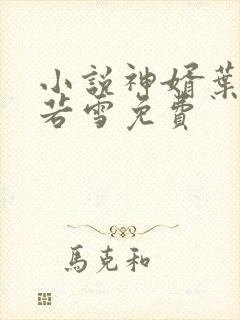 小說神婿葉
若雪免費
馬克和